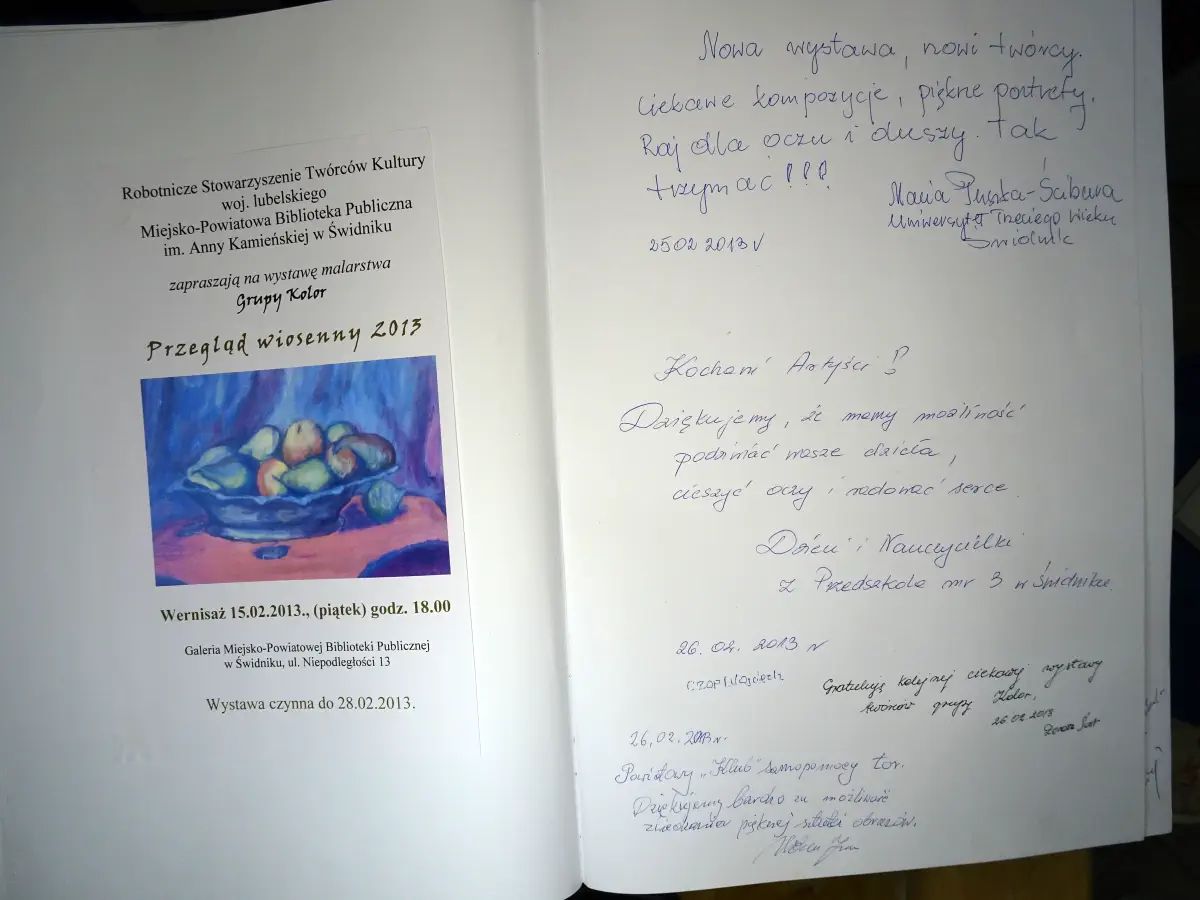 Robotnicze Stowarzyszenie Twórców Kultury
woj. lubelskiego
Miejsko-Powiatowa Biblioteka Publiczna
im. Anny Kamieńskiej w Świdniku
zapraszają na wystawę malarstwa
Grupy Kolor
Przegląd wiosenny 2013
Wernisaż 15.02.2013., (piątek) godz. 18.00
Galeria Miejsko-Powiatowej Biblioteki Publicznej
w Świdniku, ul. Niepodległości 13
Wystawa czynna do 28.02.2013.
Nowa wystawa, nowi twórcy.
Ciekawe kompozycje, piękne portrety.
Raj dla oczu i duszy. Tak
trzymać!!!
Maria
Uniwersytet Trzeciego Wieku
Świdnik
25 02 2013 r
Kochani Artyści!
Dziękujemy, że mamy możliność
podziwiać wasze dzieła,
cieszyć oczy i radować serce.
Dzieci i Nauczycielki
z Przedszkola nr 3 w Świdniku.
26. 02. 2013 r
Gratuluję kolejnej ciekawej wystawy
twórców grupy Kolor.
26 02 2013
26.02.2013 r.
Powiatowy "Klub" samopomocy
Dziękujemy bardzo za możliwość
pięknej obrazów.